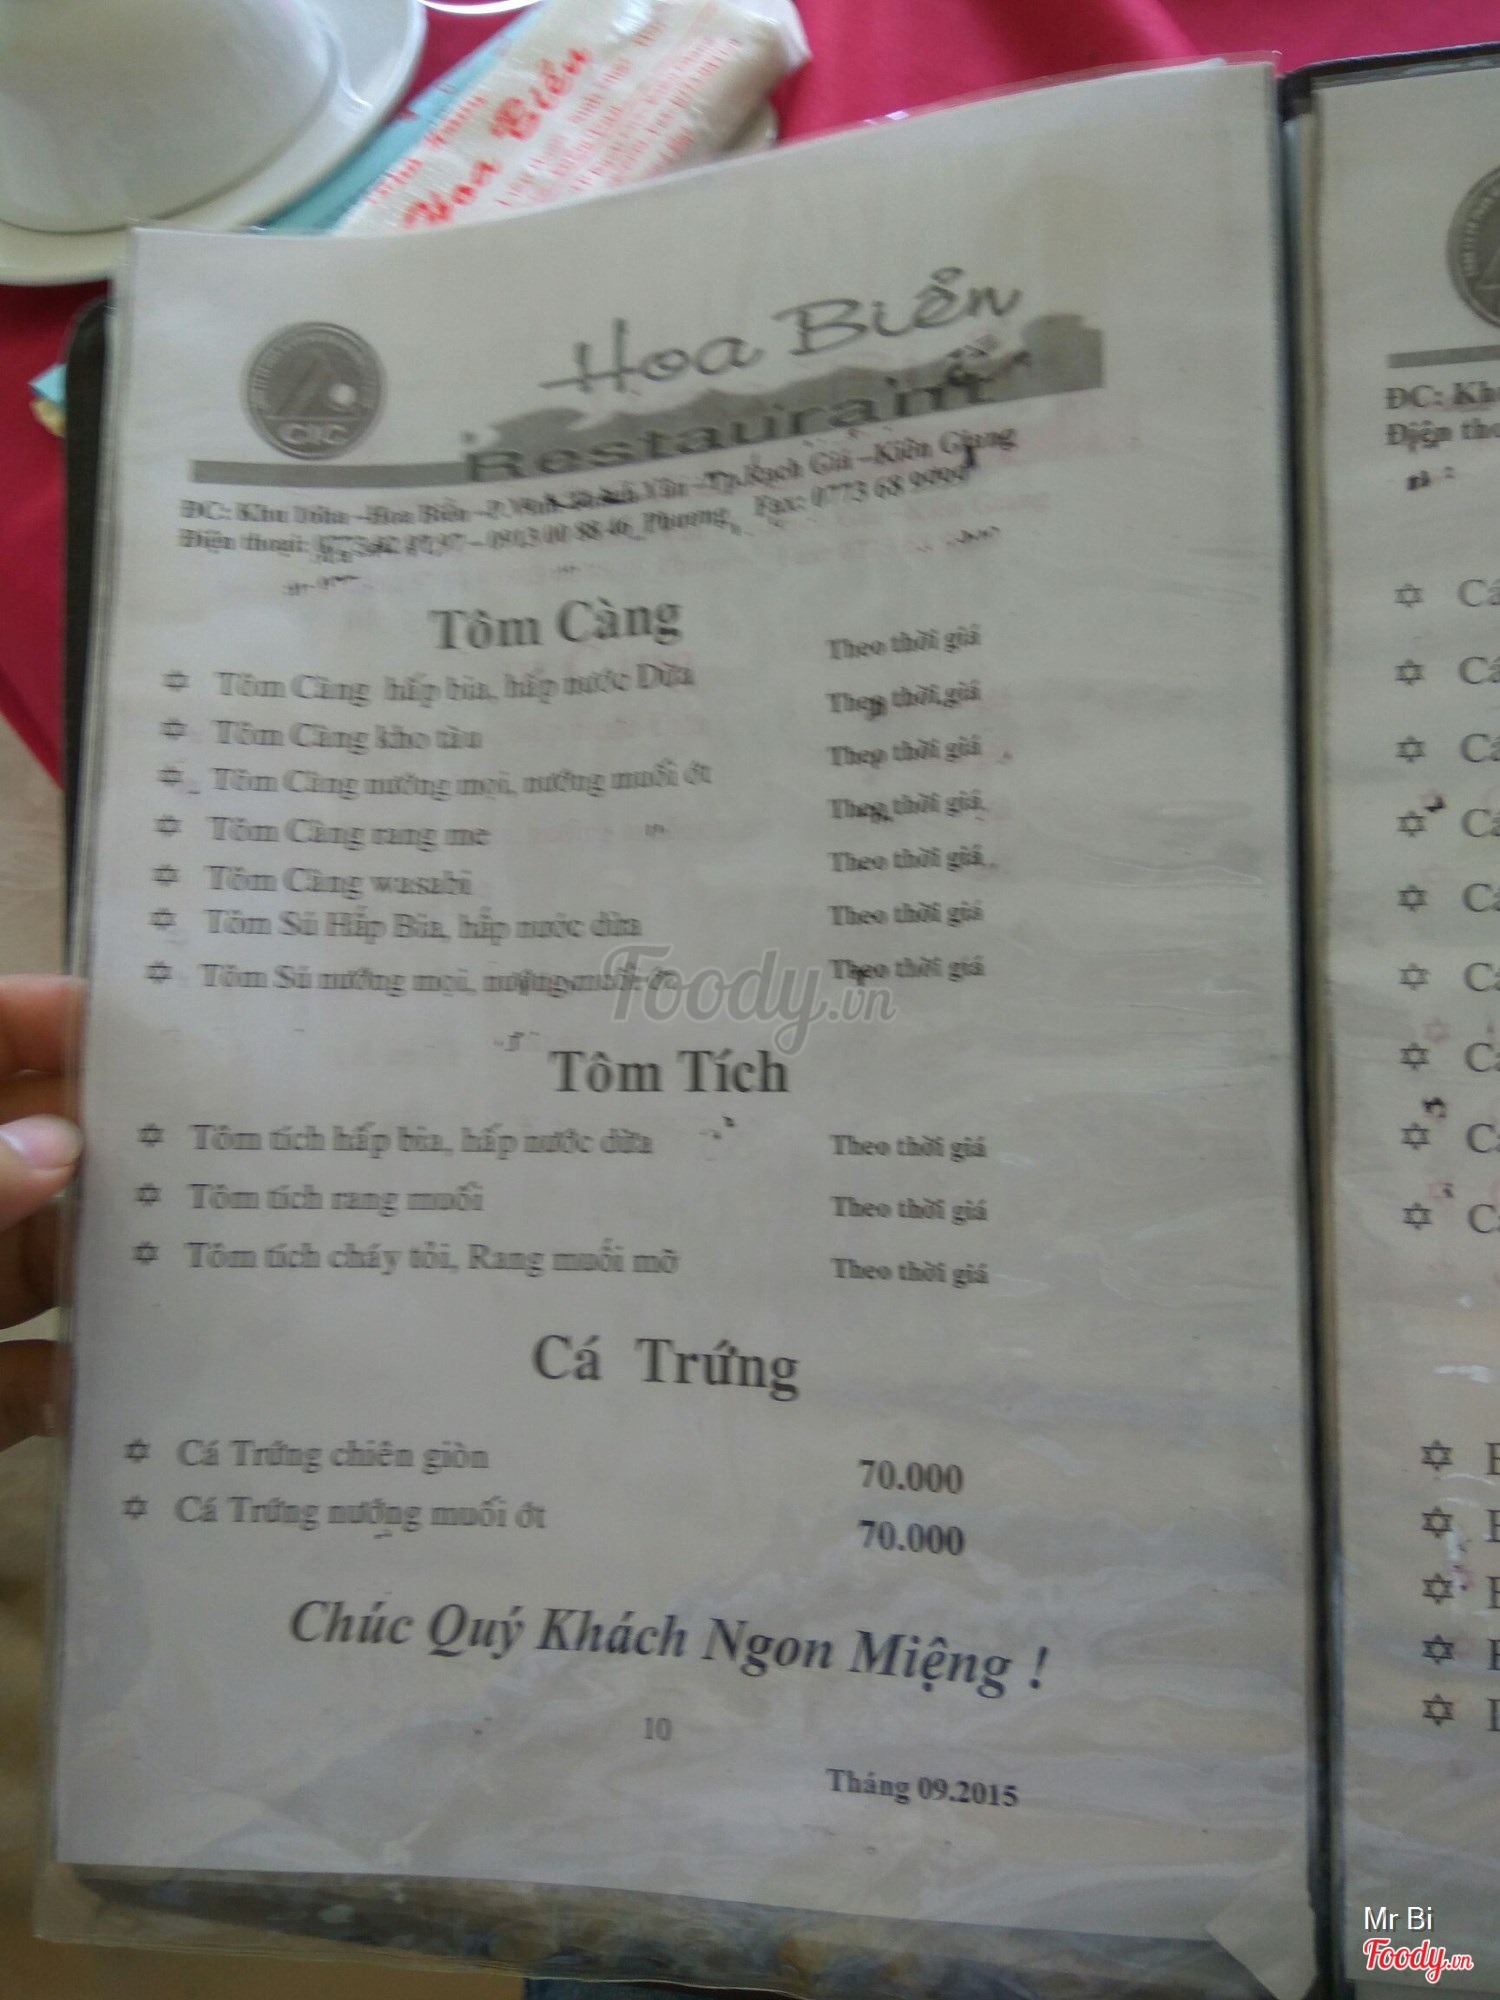 Hoa Biển
Hoa Biển
Restaurant
CIC
ĐC: Khu –Hoa Biển –P. –Tp.Rạch Giá –Kiên Giang
Điện thoại: Phương, Fax: 0773 68 9999
Tôm Càng
✡ Tôm Càng hấp bia, hấp nước Dừa Theo thời giá
✡ Tôm Càng kho tàu Theo thời giá
✡ Tôm Càng nướng mọi, nướng muối ớt Theo thời giá
✡ Tôm Càng rang me Theo thời giá
✡ Tôm Càng wasabi Theo thời giá
✡ Tôm Sú Hấp Bia, hấp nước dừa Theo thời giá
✡ Tôm Sú nướng mọi, nướng muối ớt Theo thời giá
Foody.vn
Tôm Tích
✡ Tôm tích hấp bia, hấp nước dừa Theo thời giá
✡ Tôm tích rang muối Theo thời giá
✡ Tôm tích cháy tỏi, Rang muối mỡ Theo thời giá
Cá Trứng
✡ Cá Trứng chiên giòn 70.000
✡ Cá Trứng nướng muối ớt 70.000
Chúc Quý Khách Ngon Miệng !
10
Tháng 09.2015
ĐC:
Điện
Mr Bi
Foody.vn